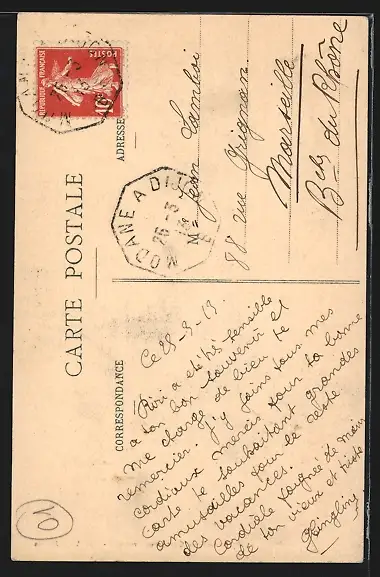 CARTE POSTALE
CORRESPONDANCE
ADRESSE
RÉPUBLIQUE FRANÇAISE
POSTES
10c
MODANE A DIJON
26 - 3
Mr Jean Lambin
88 rue Grignan
Marseille
Bches du Rhône
Ce 25-3-13.
Riri a été très sensible
a ton bon souvenir et
me charge de bien te
remercier. J'y joins tous mes
cordiaux mercis pour ta bonne
carte te souhaitant grandes
amusailles pour le reste
des vacances.
Cordiale poignée de main
de ton vieux et
10